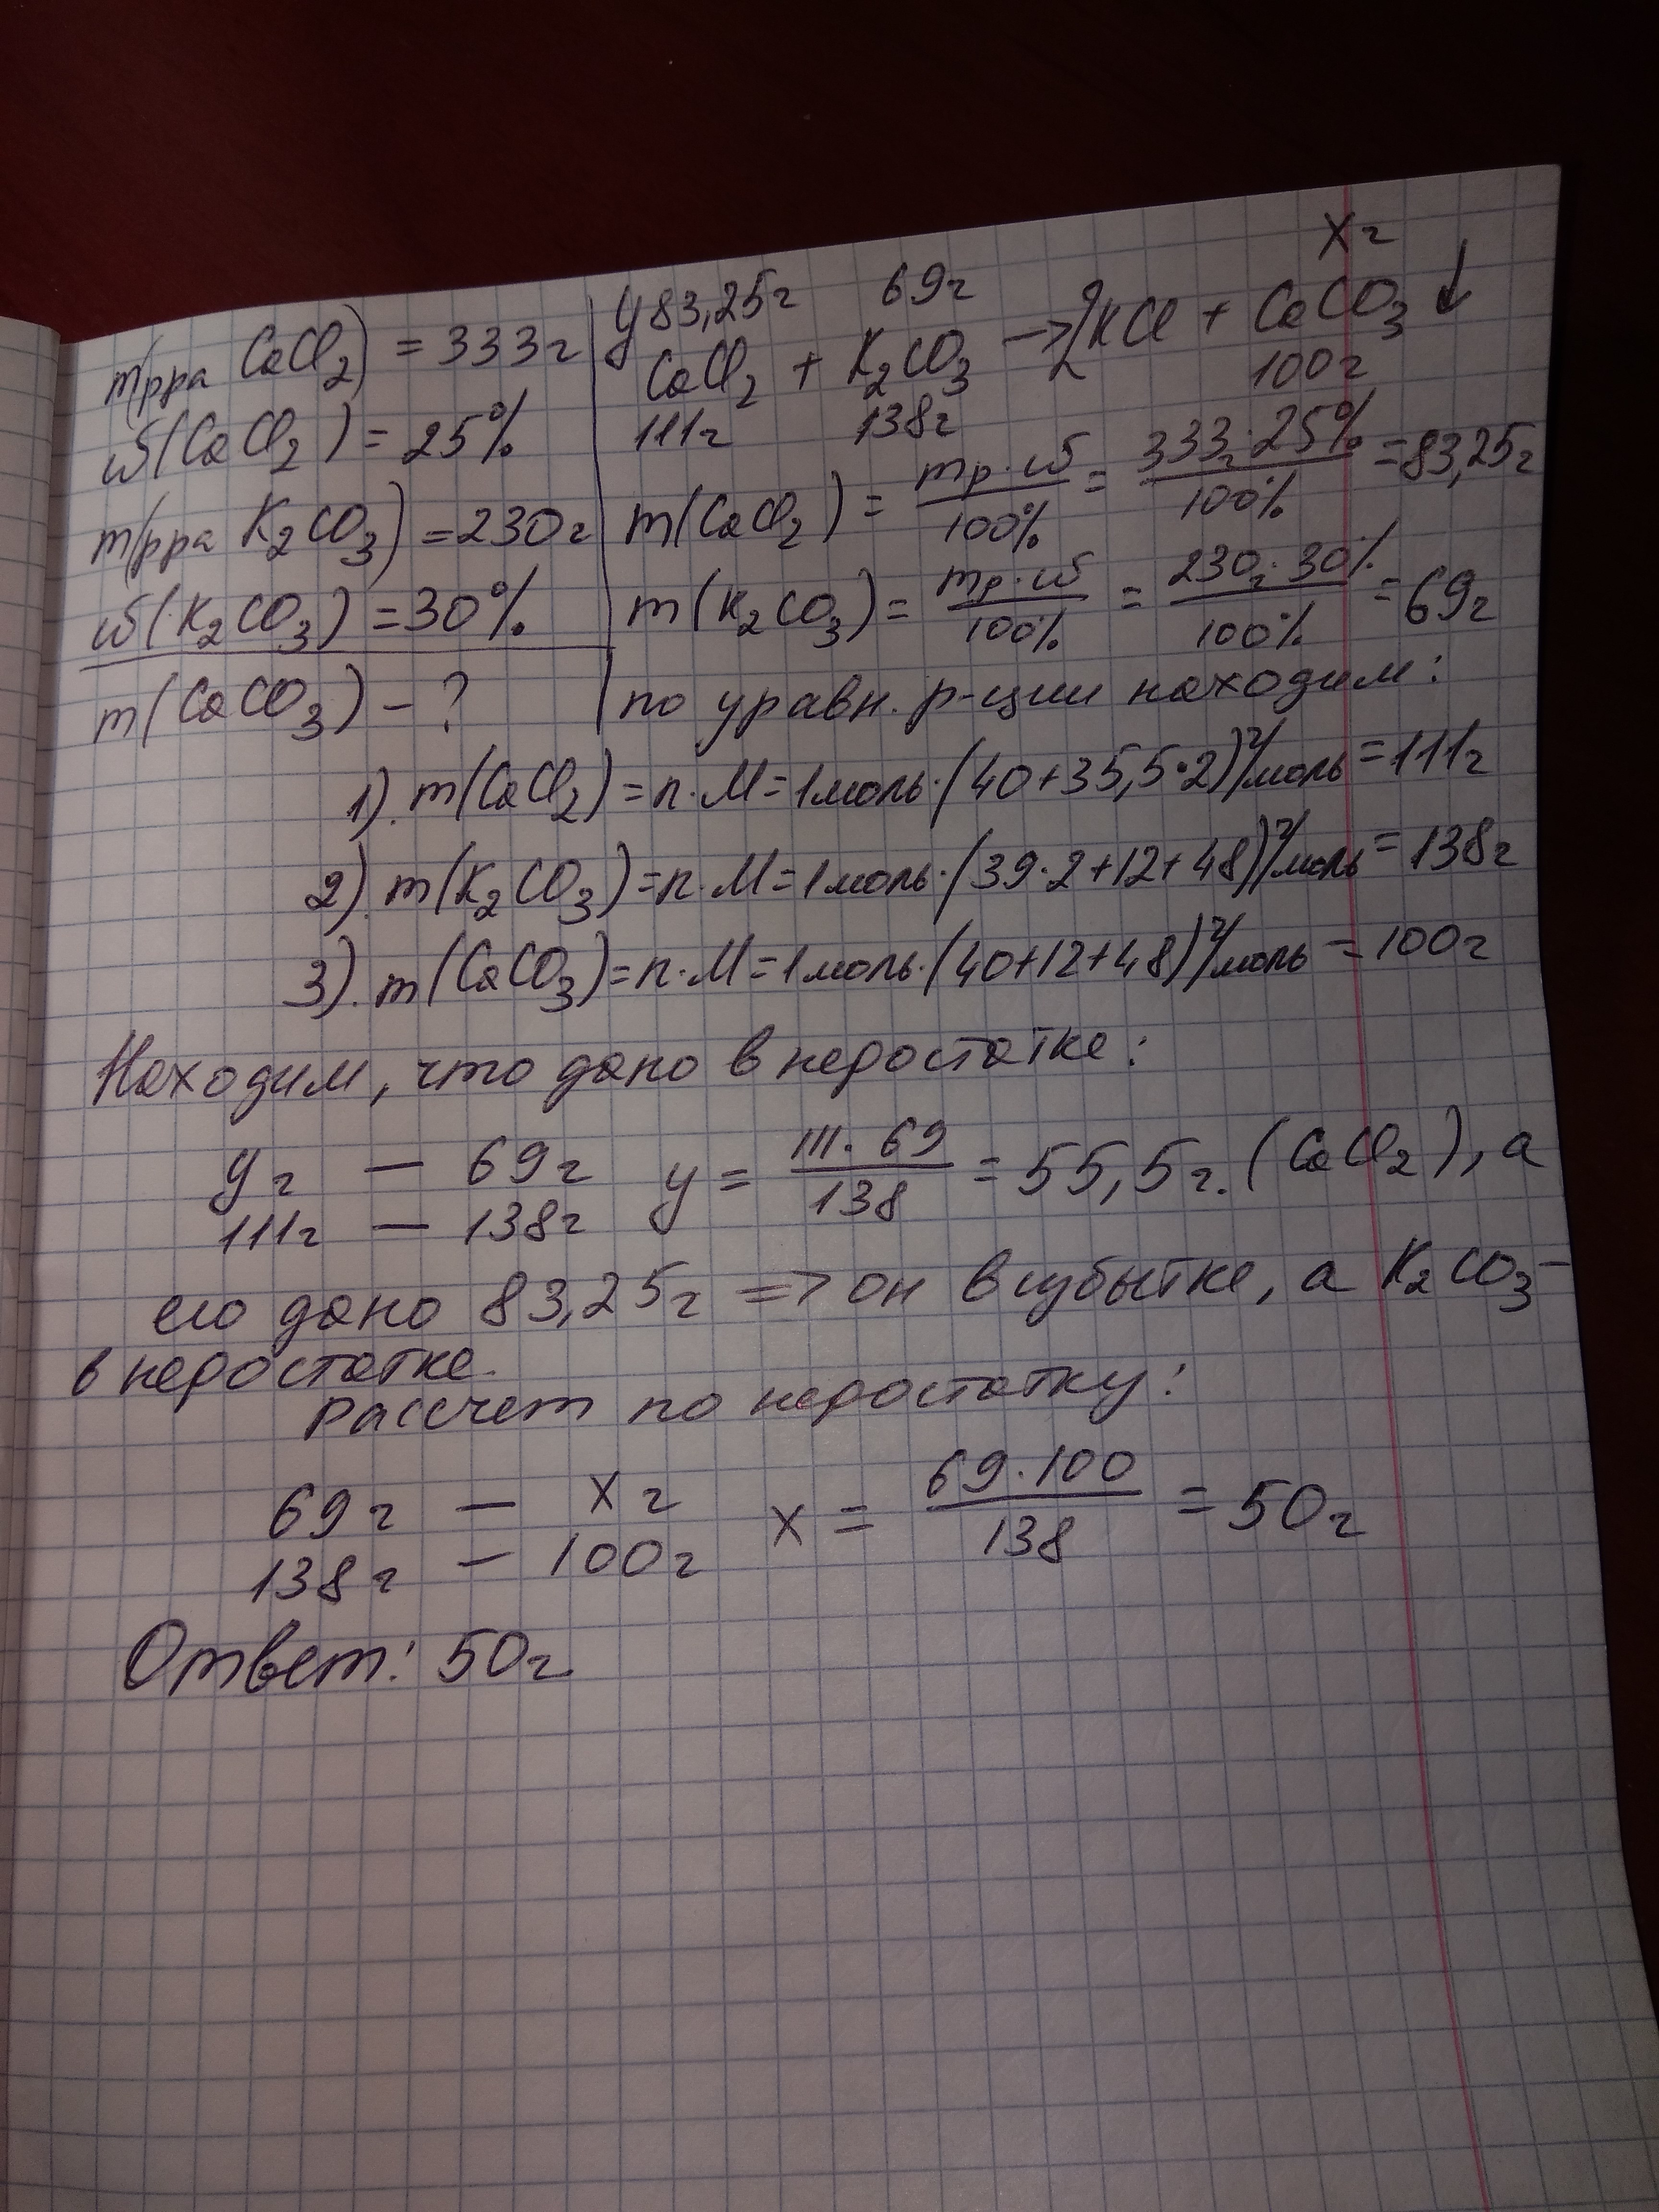 m(рра CaCl2) = 333г
ω(CaCl2) = 25%
m(рра K2CO3) = 230г
ω(K2CO3) = 30%
m(CaCO3) - ?
y 83,25г 69г xг
CaCl2 + K2CO3 → 2KCl + CaCO3 ↓
111г 138г 100г
m(CaCl2) = mр·ω/100% = 333г·25%/100% = 83,25г
m(K2CO3) = mр·ω/100% = 230г·30%/100% = 69г
по уравн. р-ции находим:
1). m(CaCl2) = n·M = 1моль·(40+35,5·2)г/моль = 111г
2). m(K2CO3) = n·M = 1моль·(39·2+12+48)г/моль = 138г
3). m(CaCO3) = n·M = 1моль·(40+12+48)г/моль = 100г
Находим, что дано в недостатке:
yг — 69г y = 111·69/138 = 55,5г. (CaCl2), а
111г — 138г
его дано 83,25г => он в избытке, а K2CO3 -
в недостатке.
Рассчет по недостатку:
69г — xг x = 69·100/138 = 50г
138г — 100г
Ответ: 50г